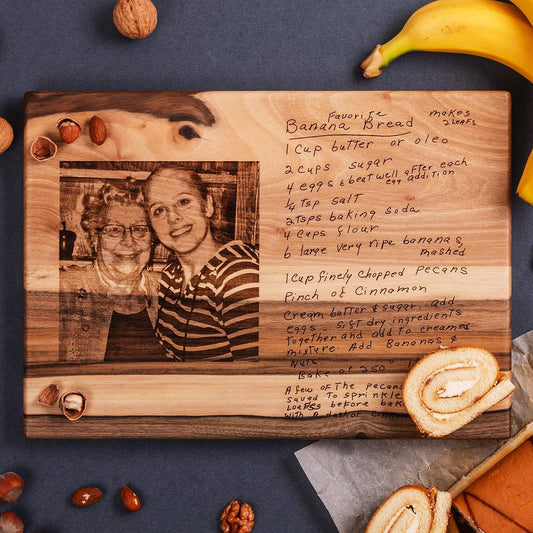 Favorite makes
Banana Bread 2 Loafs
1 Cup butter or oleo
2 cups sugar
4 eggs & beat well after each
egg addition
1/4 tsp salt
2 tsps baking soda
4 cups flour
6 large very ripe bananas,
mashed
1 Cup finely chopped pecans
Pinch of Cinnamon
Cream butter & sugar. add
eggs. Sift dry ingredients
together and add to creamed
mixture. Add Bananas &
Nuts.
Bake at 250°
A few of The pecans
saved To sprinkle
Loafs before
With a dash of